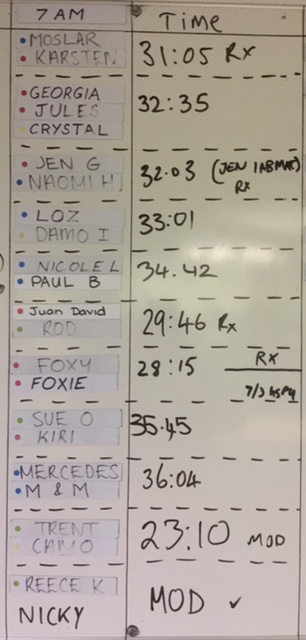 7 AM Time
MOSLAR
KARSTEN 31:05 Rx
GEORGIA
JULES 32:35
CRYSTAL
JEN G 32.03 (JEN
NAOMI H Rx
LOZ 33:01
DAMO I
NICOLE L 34.42
PAUL B
Juan David 29:46 Rx
ROD
FOXY 28:15 Rx
FOXIE
SUE O 35.45
KIRI
MERCEDES 36:04
M & M
TRENT 23:10 MOD
CAMO
REECE K MOD ✓
NICKY